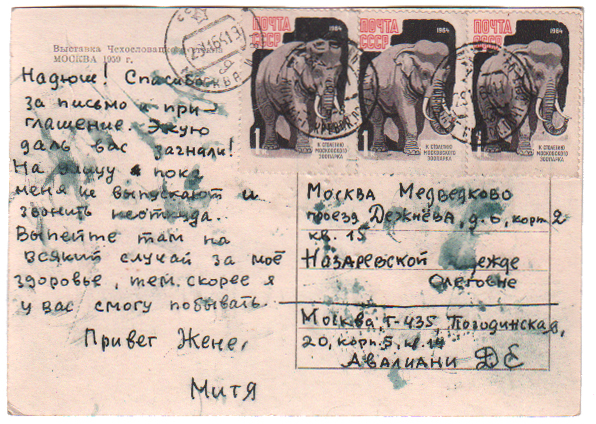 Выставка Чехословацкого стекла
МОСКВА 1959 г.
Надюше! Спасибо
за письмо и при-
глашение. Экую
даль вас загнали!
На улицу я пока
меня не выпускают и
звонить неоткуда.
Выпейте там на
всякий случай за моё
здоровье, тем скорее я
у вас смогу побывать.
Привет Жене,
Митя
ПОЧТА
СССР
1964
1
К СТОЛЕТИЮ
МОСКОВСКОГО
ЗООПАРКА
ПОЧТА
СССР
1964
1
К СТОЛЕТИЮ
МОСКОВСКОГО
ЗООПАРКА
ПОЧТА
СССР
1964
1
К СТОЛЕТИЮ
МОСКОВСКОГО
ЗООПАРКА
МОСКВА
Москва Медведково
проезд Дежнёва, д. 6, корп 2
кв. 15
Назаревской Надежде
Олеговне
Москва, Г-435, Погодинская,
20, корп. 5, кв. 14
Авалиани Д Е